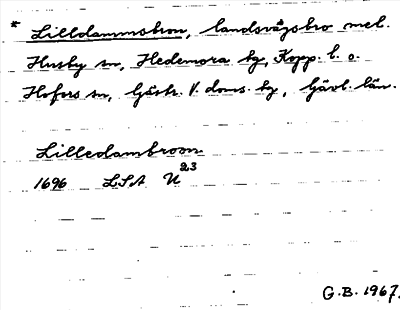 * Lilldammsbron, landsvägsbro mel.
Husby sn, Hedemora hg, Kopp. l. o.
Hofors sn, Gästr. V. doms. hg, Gävl. län.
Lilledambroon
1696 LSA U²³
G.B. 1967.